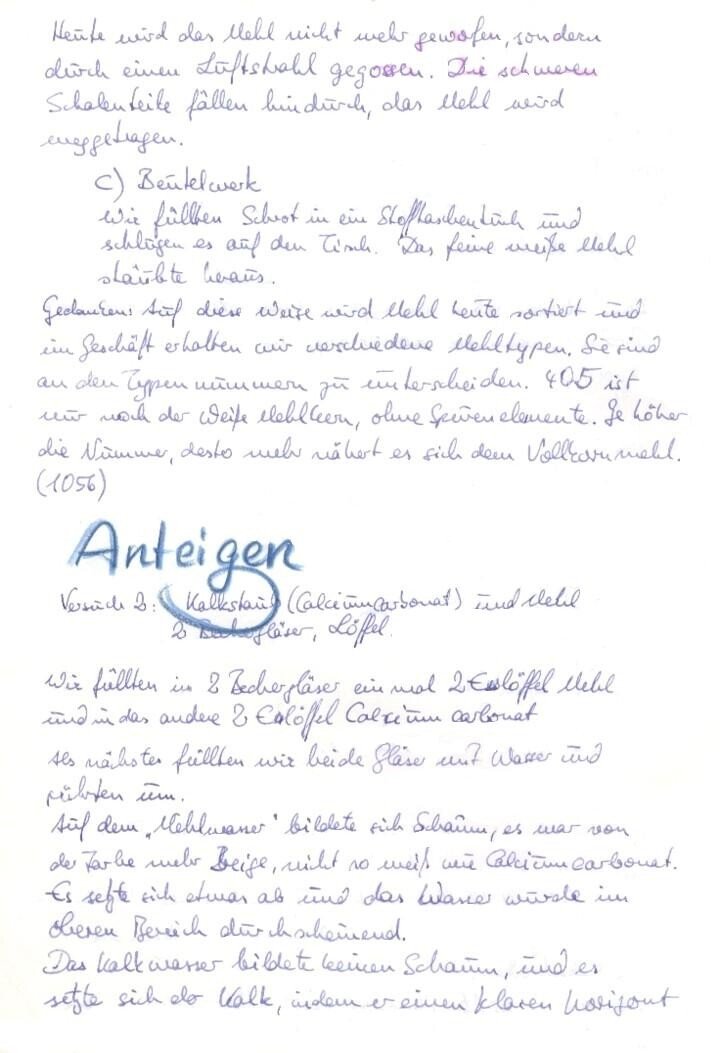 Heute wird das Mehl nicht mehr geworfen, sondern
durch einen Luftstrahl gegossen. Die schweren
Schalenteile fallen hindurch, das Mehl wird
weggetragen.
c) Beutelwerk
Wir füllten Schrot in ein Stofftaschentuch und
schlugen es auf den Tisch. Das feine weiße Mehl
stäubte heraus.
Gedanken: Auf diese Weise wird Mehl heute sortiert und
im Geschäft erhalten wir verschiedene Mehltypen. Sie sind
an den Typennummern zu unterscheiden. 405 ist
nur noch der weiße Mehlkern, ohne Spurenelemente. Je höher
die Nummer, desto mehr nähert es sich dem Vollkornmehl.
(1056)
Anteigen
Versuch 2: Kalkstaub (Calciumcarbonat) und Mehl
2 Bechergläser, Löffel.
Wir füllten in 2 Bechergläser einmal 2 Esslöffel Mehl
und in das andere 2 Esslöffel Calcium carbonat
Als nächstes füllten wir beide Gläser mit Wasser und
rührten um.
Auf dem „Mehlwasser" bildete sich Schaum, es war von
der Farbe mehr Beige, nicht so weiß wie Calciumcarbonat.
Es setzte sich etwas ab und das Wasser wurde im
oberen Bereich durchscheinend.
Das Kalkwasser bildete keinen Schaum, und es
setzte sich der Kalk, indem er einen klaren Horizont